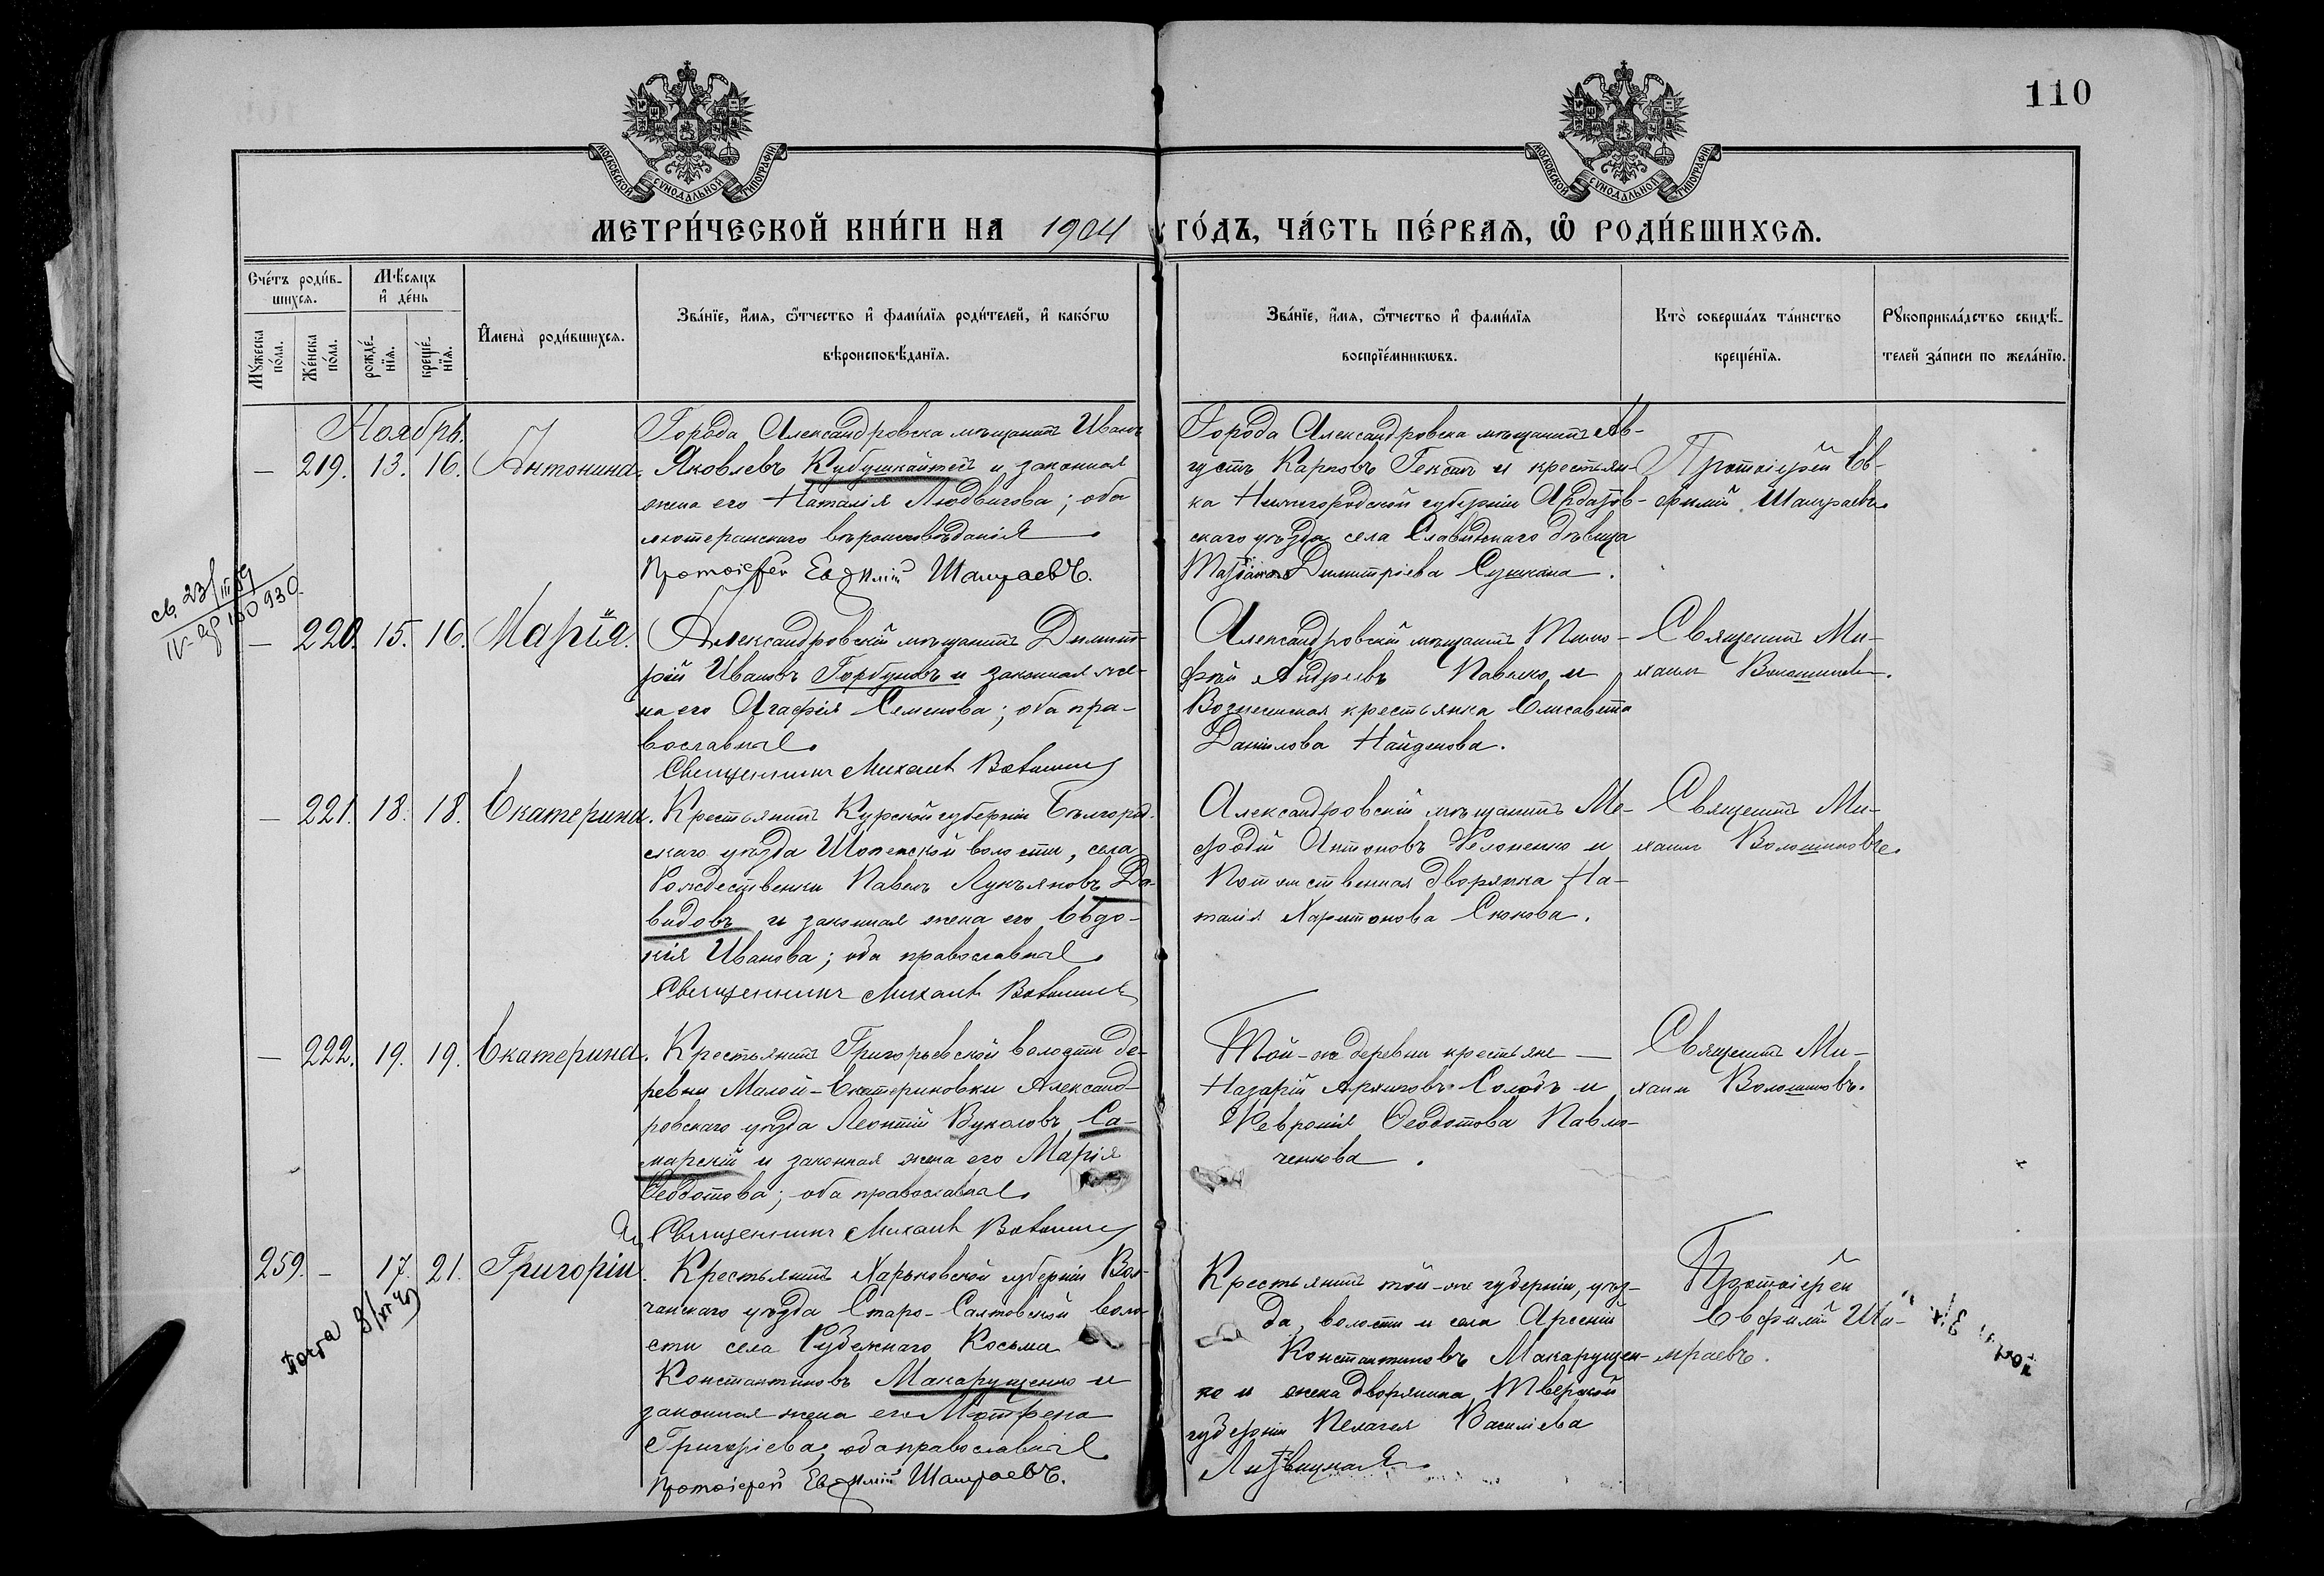 110
МОСКОВСКОЙ СѴНОДАЛЬНОЙ ТИПОГРАФІИ
МОСКОВСКОЙ СѴНОДАЛЬНОЙ ТИПОГРАФІИ
МЕТРИ́ЧЕСКОЙ КНИ́ГИ НА 1904 ГО́ДЪ, ЧА́СТЬ ПЕ́РВАѦ, Ѡ҆ РОДИ́ВШИХСѦ.
Сче́тъ роди́в-
шихсѧ.
Мѣ́сяцъ
и҆ де́нь
Мꙋ́жеска
по́ла.
Же́нска
по́ла.
рожде́-
нїѧ.
креще́-
нїѧ.
И҆мена̀ роди́вшихсѧ.
Зва́нїе, и҆́мѧ, ѻ҆́тчество и҆ фами́лїѧ роди́телей, и҆ како́гѡ
вѣроисповѣ́данїѧ.
Зва́нїе, и҆́мѧ, ѻ҆́тчество и҆ фами́лїѧ
воспрїе́мникѡвъ.
Кто̀ соверша́лъ та́инство
креще́нїѧ.
Рꙋкоприкла́дство свидѣ́-
телей за́писи по жела́нїю.
Ноябрь.
— 219. 13. 16. Антонина.
Города Александровска мѣщанинъ Иванъ
Яковлевъ и законная
жена его Наталія Людвигова; оба
лютеранскаго вѣроисповѣданія
Протоіерей Евѳимій Шамраевъ.
Города Александровска мѣщанинъ Ав-
густъ Карловъ и крестьян-
ка Нижегородской губерніи Ардатов-
скаго уѣзда села дѣвица
Димитріева
Протоіерей Ев-
фимій Шамраевъ.
св. 23/III
— 220. 15. 16. Марія.
Александровскій мѣщанинъ Димит-
рій Ивановъ Горбуновъ и законная же-
на его Агафія Семенова; оба пра-
вославные.
Священникъ Михаилъ Волошинъ
Александровскій мѣщанинъ Тимо-
фей Андреевъ и
Вознесенская крестьянка Елисавета
Данилова Найденова.
Священникъ Ми-
хаилъ Волошиновъ.
— 221. 18. 18. Екатерина.
Крестьянинъ Курской губерніи Бѣлгород-
скаго уѣзда Шопенской волости, села
Рождественки Павелъ Лукьяновъ Да-
видовъ и законная жена его Евдо-
кія Иванова; оба православные.
Священникъ Михаилъ Волошинъ
Александровскій мѣщанинъ Ме-
фодій Антоновъ и
Потомственная дворянка На-
талія Харитонова
Священникъ Ми-
хаилъ Волошиновъ.
— 222. 19. 19. Екатерина.
Крестьянинъ Григорьевской волости де-
ревни Малой-Екатериновки Александ-
ровскаго уѣзда Леонтій Вуколовъ Са-
марскій и законная жена его Марія
Ѳеодотова; оба православные.
Священникъ Михаилъ Волошинъ
Той-же деревни крестьяне —
Назарій Архиповъ Солодъ и
Февронія Ѳеодотова Павлю-
ченкова.
Священникъ Ми-
хаилъ Волошиновъ.
259. — 17. 21. Григорій.
Крестьянинъ Харьковской губерніи Вол-
чанскаго уѣзда Старо-Салтовской воло-
сти села Рубежнаго Косьма
Константиновъ Макарущенко и
законная жена его Матрена
Григоріева, оба православные
Протоіерей Евѳимій Шамраевъ.
Крестьянинъ той-же губерніи, уѣз-
да, волости и села Арсеній
Константиновъ Макарущен-
ко и жена дворянина Тверской
губерніи Пелагея Васильева
Протоіерей
Евфимій Ша-
мраевъ.